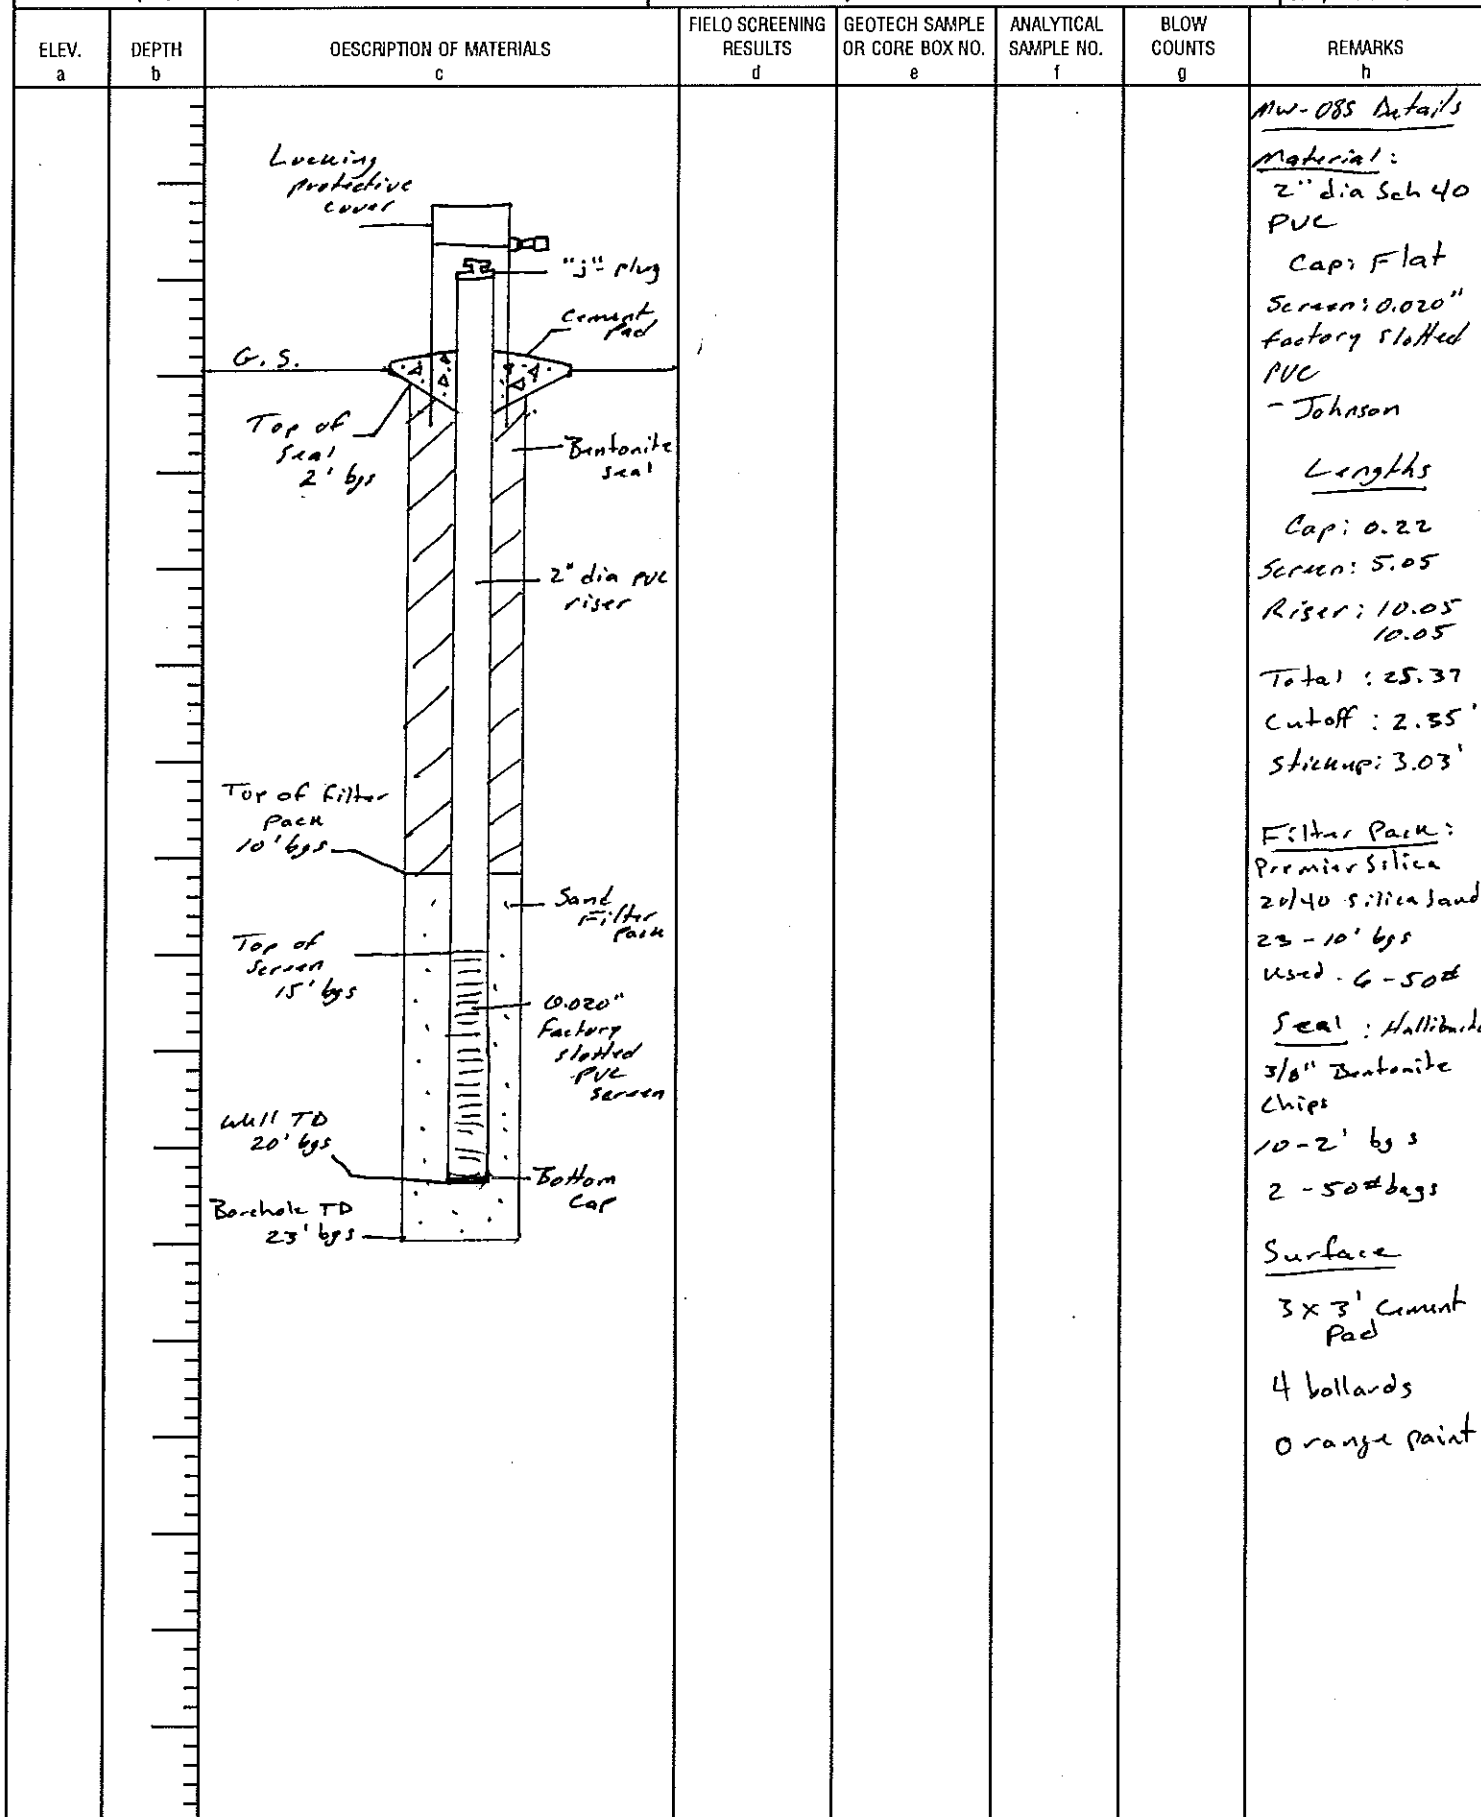 ELEV.
a
DEPTH
b
DESCRIPTION OF MATERIALS
c
FIELD SCREENING
RESULTS
d
GEOTECH SAMPLE
OR CORE BOX NO.
e
ANALYTICAL
SAMPLE NO.
f
BLOW
COUNTS
g
REMARKS
h
Locking
protective
cover
"j" plug
Cement
Pad
G.S.
Top of
Seal
2' bgs
Bentonite
seal
2" dia PVC
riser
Top of Filter
Pack
10' bgs
Sand
Filter
Pack
Top of
Screen
15' bgs
0.020"
Factory
slotted
PVC
screen
Well TD
20' bgs
Bottom
Cap
Borehole TD
23' bgs
MW-08S Details
Material:
2" dia Sch 40
PVC
Cap: Flat
Screen: 0.020"
factory slotted
PVC
- Johnson
Lengths
Cap: 0.22
Screen: 5.05
Riser: 10.05
10.05
Total: 25.37
Cutoff: 2.35'
Stickup: 3.03'
Filter Pack:
Premier Silica
20/40 silica sand
23-10' bgs
Used - 6-50#
Seal:
3/8" Bentonite
Chips
10-2' bgs
2-50# bags
Surface
3 x 3' Cement
Pad
4 bollards
Orange paint